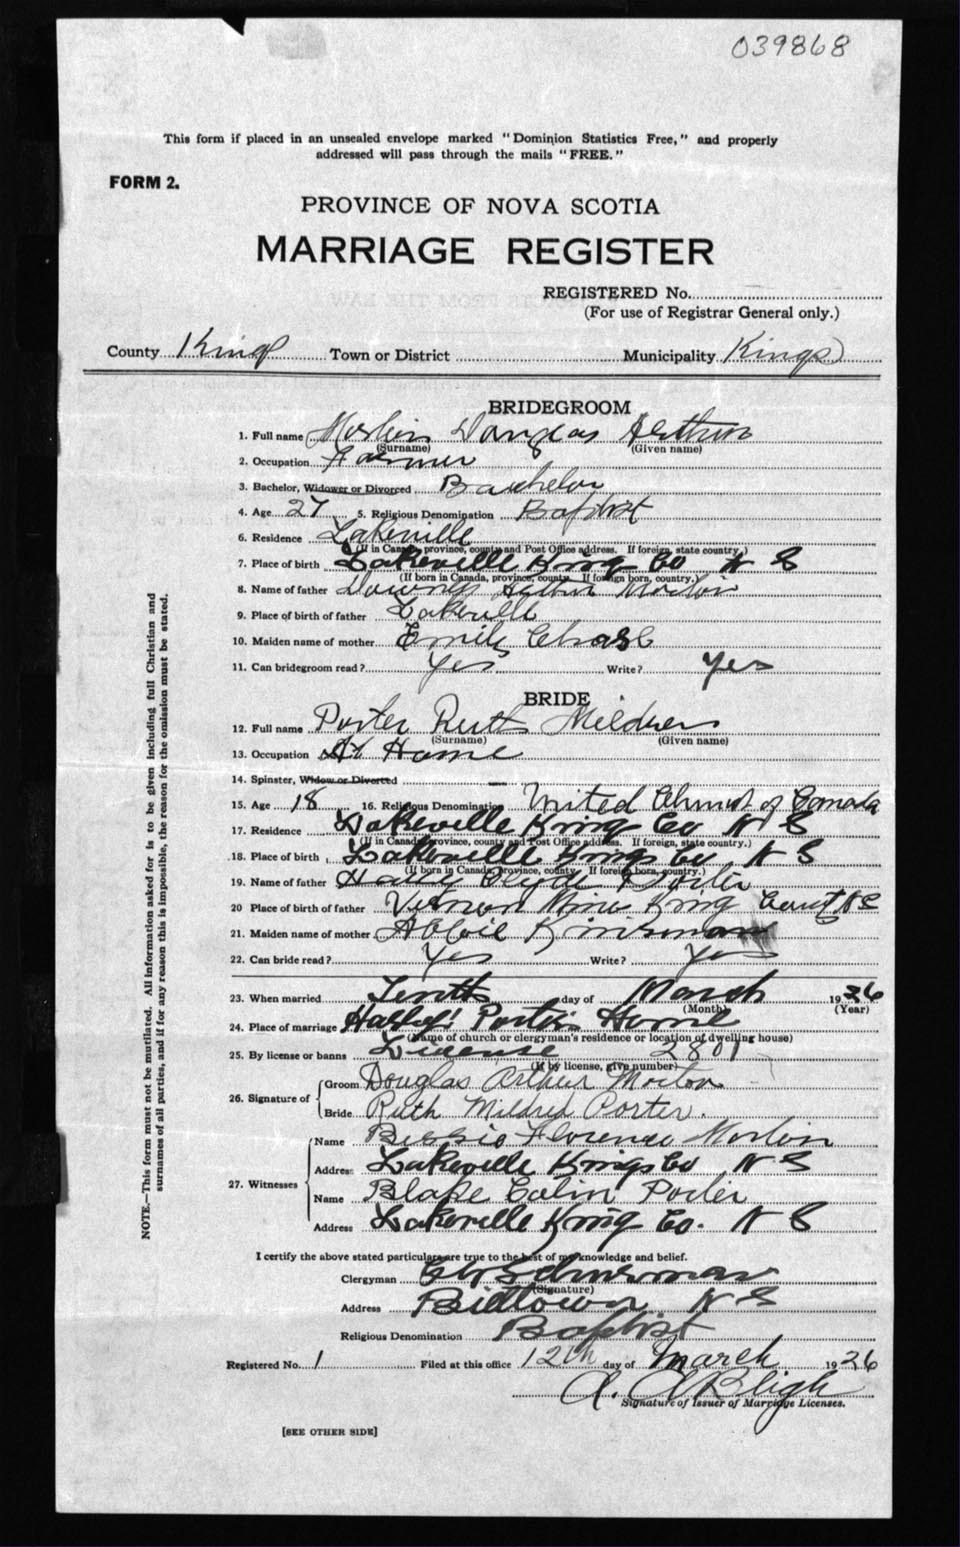 039868
This form if placed in an unsealed envelope marked "Dominion Statistics Free," and properly
addressed will pass through the mails "FREE."
FORM 2.
PROVINCE OF NOVA SCOTIA
MARRIAGE REGISTER
REGISTERED No.
(For use of Registrar General only.)
County Kings Town or District Municipality Kings
BRIDEGROOM
1. Full name Morton Douglas Arthur
(Surname) (Given name)
2. Occupation Farmer
3. Bachelor, Widower or Divorced Bachelor
4. Age 27 5. Religious Denomination Baptist
6. Residence Lakeville
(If in Canada, province, county and Post Office address. If foreign, state country.)
7. Place of birth Lakeville Kings Co N S
(If born in Canada, province, county. If foreign born, country.)
8. Name of father Morton
9. Place of birth of father Lakeville
10. Maiden name of mother Emily Chase
11. Can bridegroom read? Yes Write? Yes
BRIDE
12. Full name Porter Ruth Mildred
(Surname) (Given name)
13. Occupation At Home
14. Spinster, Widow or Divorced —
15. Age 18 16. Religious Denomination United Church of Canada
17. Residence Lakeville Kings Co N S
(If in Canada, province, county and Post Office address. If foreign, state country.)
18. Place of birth Lakeville Kings Co N S
(If born in Canada, province, county. If foreign born, country.)
19. Name of father Clyde Porter
20 Place of birth of father Vernon Mines Kings County N S
21. Maiden name of mother Abbie Kinsman
22. Can bride read? Yes Write? Yes
23. When married Tenth day of March 1926
(Month) (Year)
24. Place of marriage Porter's Home
(Name of church or clergyman's residence or location of dwelling house)
25. By license or banns License 2801
(If by license, give number)
26. Signature of Groom Douglas Arthur Morton
Bride Ruth Mildred Porter.
27. Witnesses Name Florence Morton
Address Lakeville Kings Co N S
Name Blake Colin Porter
Address Lakeville Kings Co. N S
I certify the above stated particulars are true to the best of my knowledge and belief.
Clergyman Schurman
(Signature)
Address Billtown N S
Religious Denomination Baptist
Registered No. 1 Filed at this office 12th day of March 1926
A. A. Bligh
Signature of Issuer of Marriage Licenses.
[SEE OTHER SIDE]
NOTE.—This form must not be mutilated. All information asked for is to be given including full Christian and
surnames of all parties, and if for any reason this is impossible, the reason for the omission must be stated.